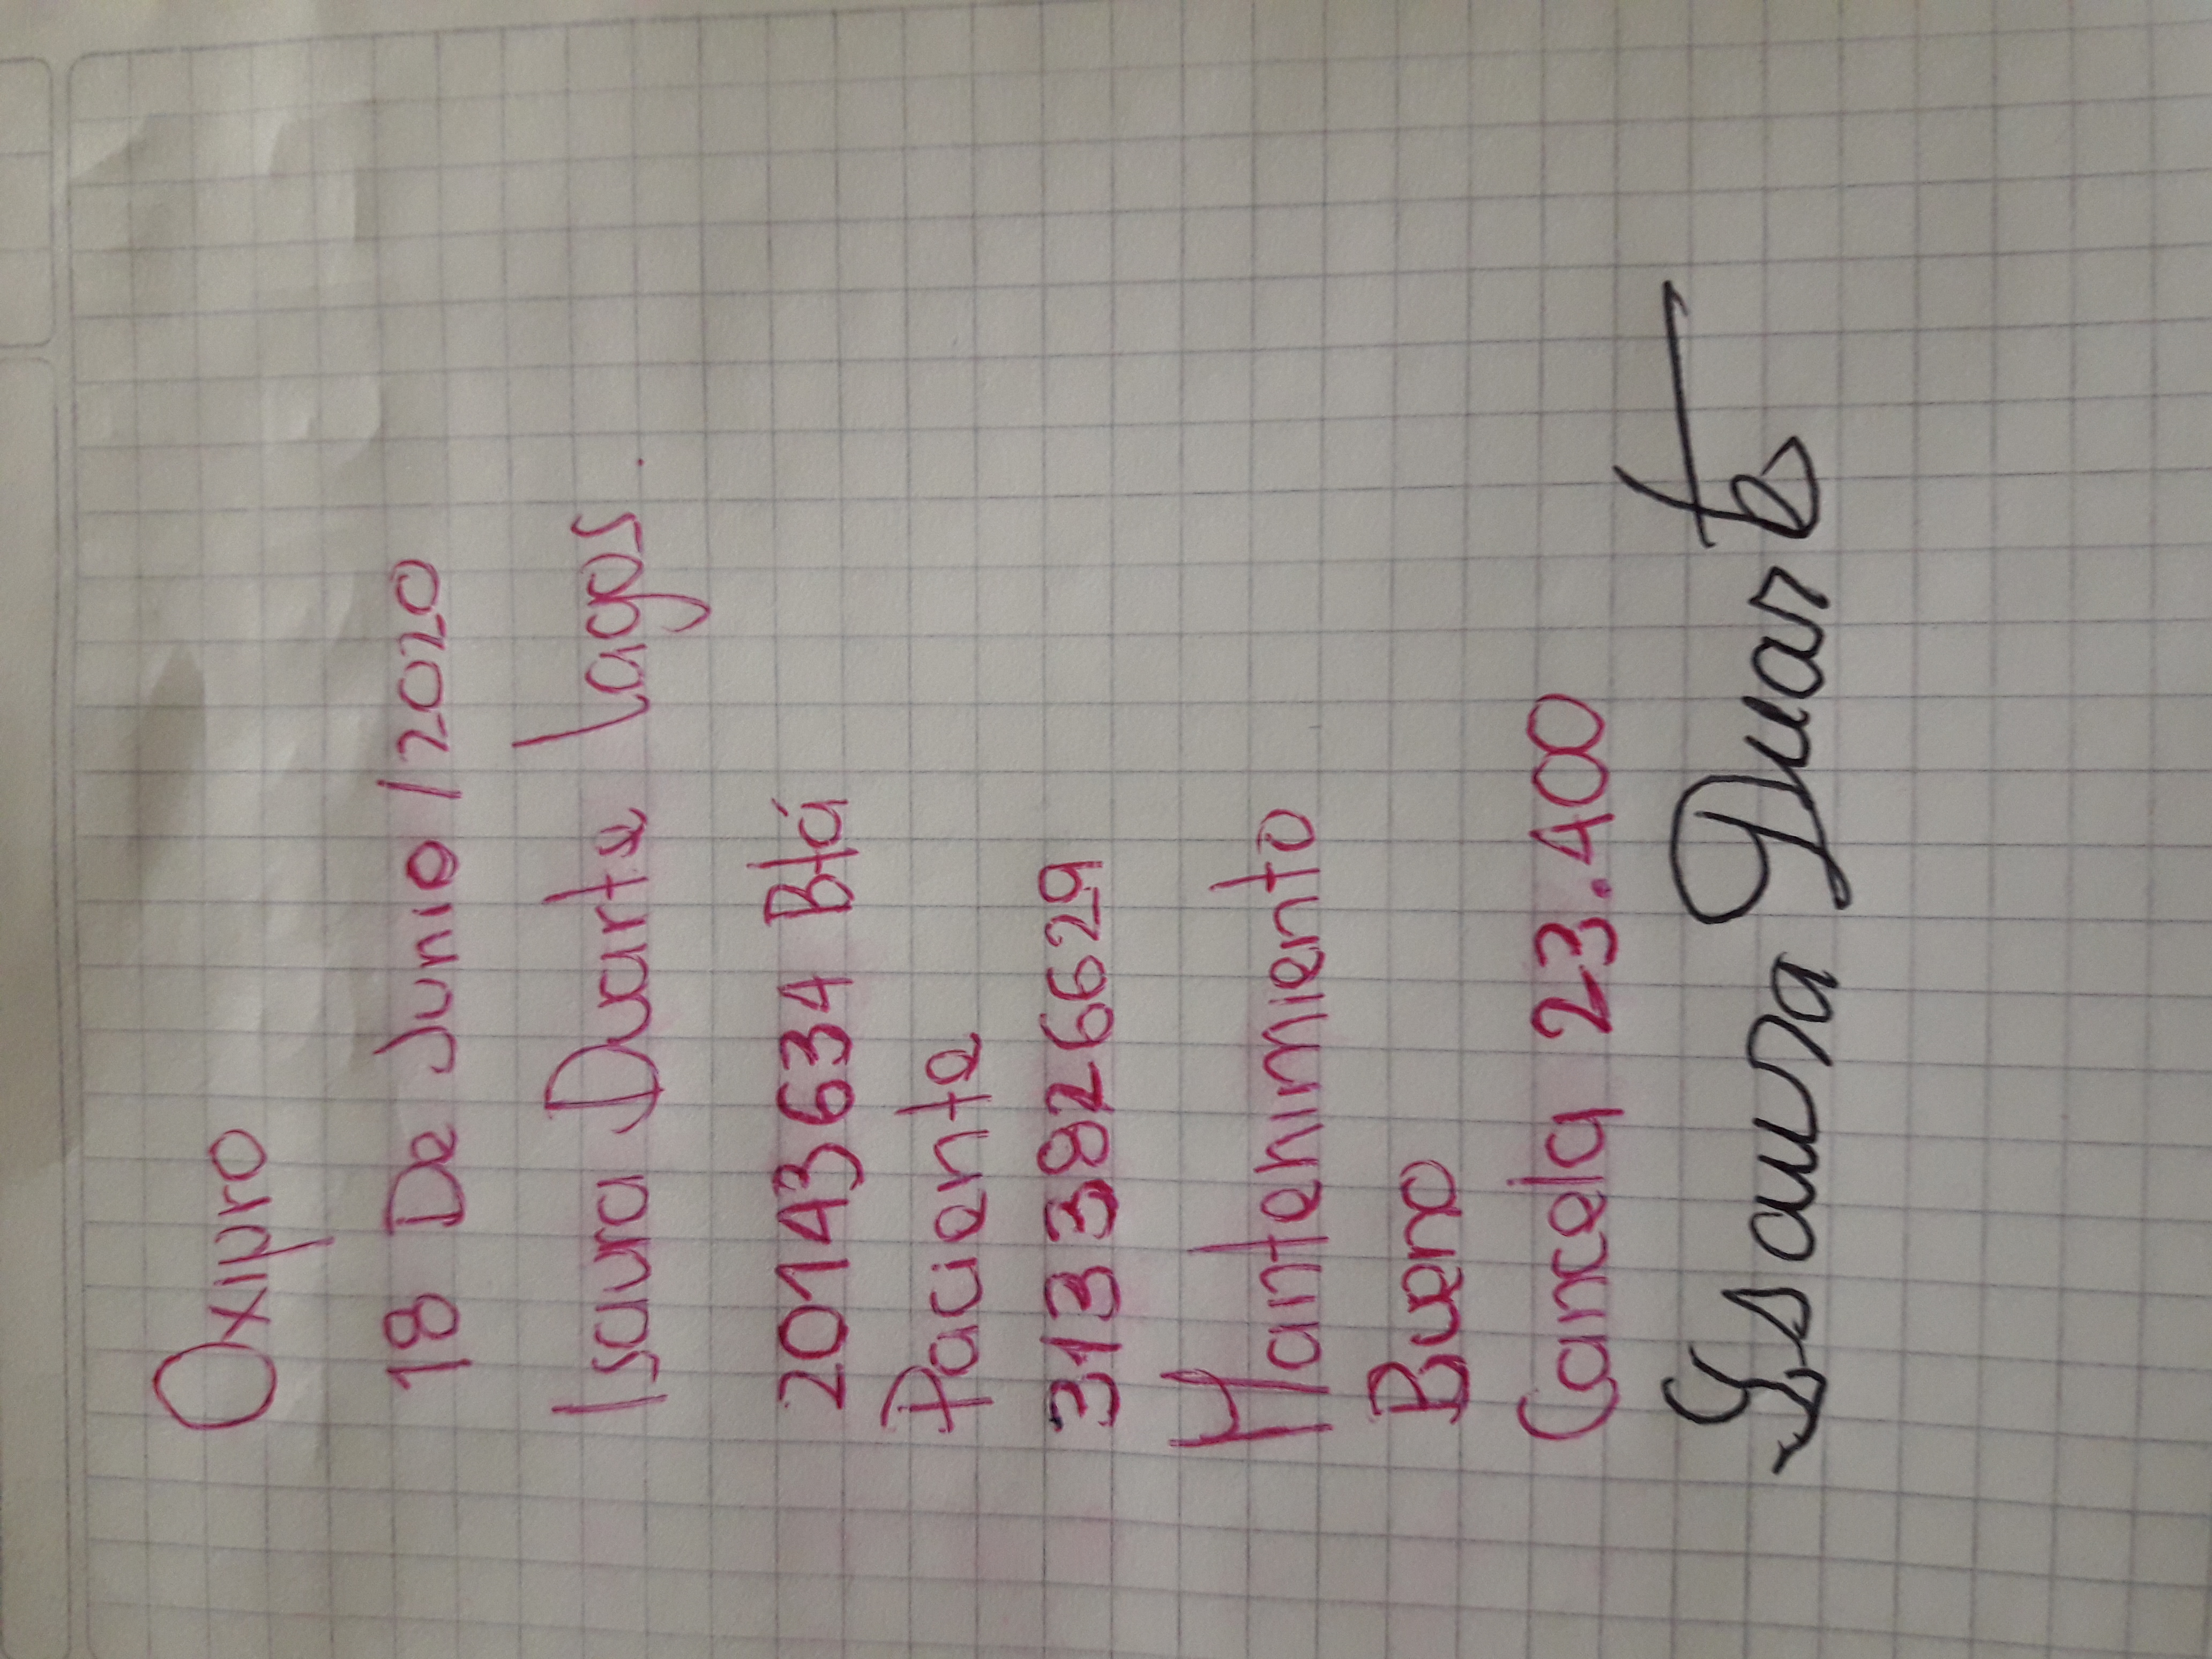 Oxipro
18 De Junio / 2020
Isaura Duarte Lagos.
20143634 Btá
Paciente
3133826629
Mantenimiento
Bueno
Cancela 23.400
Isaura Duarte